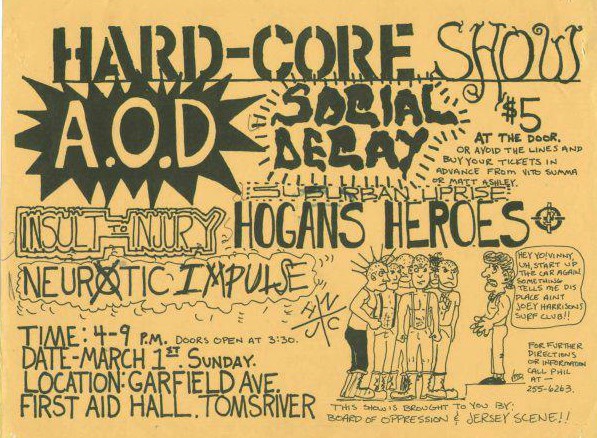 HARD-CORE SHOW
A.O.D
SOCIAL
DECAY
$5
AT THE DOOR.
OR AVOID THE LINES AND
BUY YOUR TICKETS IN
ADVANCE FROM VITO SUMMA
OR MATT ASHLEY.
SUBURBAN UPRISE
INSULT TO INJURY
HOGANS HEROES
NEUROTIC IMPULSE
N
H
J
C
HEY YO! VINNY
UH, START UP
THE CAR AGAIN!
SOMETHING
TELLS ME DIS
PLACE AINT
JOEY HARRISONS
SURF CLUB!!
TIME: 4-9 P.M. DOORS OPEN AT 3:30.
DATE-MARCH 1ST. SUNDAY.
LOCATION: GARFIELD AVE.
FIRST AID HALL. TOMSRIVER
FOR FURTHER
DIRECTIONS
OR INFORMATION
CALL PHIL
AT —
255-6263.
THIS SHOW IS BROUGHT TO YOU BY:
BOARD OF OPPRESSION & JERSEY SCENE!!